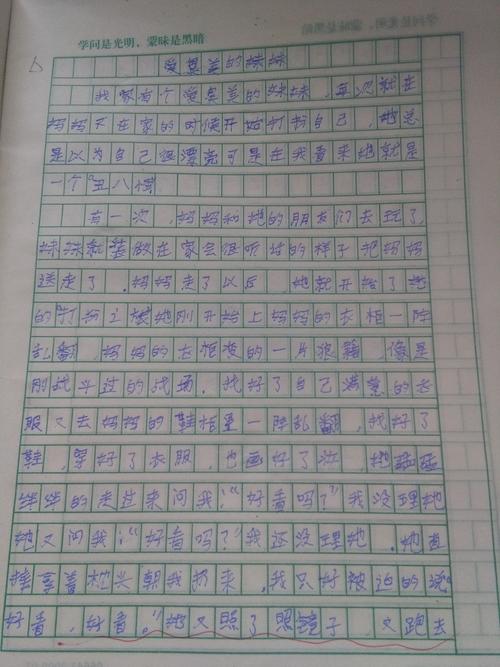 学问是光明，蒙昧是黑暗
爱臭美的妹妹
我家有个爱臭美的妹妹，每次就在
妈妈不在家的时候开始打扮自己，她总
是以为自己很漂亮可是在我看来她就是
一个"丑八怪
有一次，妈妈和她的朋友们去玩了，
妹妹就装做在家会很听话的样子把妈妈
送走了，妈妈走了以后，她就开始了她
的打扮之旅她刚开始上妈妈的衣柜一阵
乱翻，妈妈的衣柜变的一片狼籍，像是
刚战斗过的战场，找好了自己满意的衣
服又去妈妈的鞋柜里一阵乱翻，找好了
鞋，穿好了衣服，也画好了妆，她
的走过来问我："好看吗？"我没理她
她又问我："好看吗？"我还没理她，她直
拿着枕头朝我扔来，我只好被迫的说
好看，好看。"她又照了照镜子，又跑去